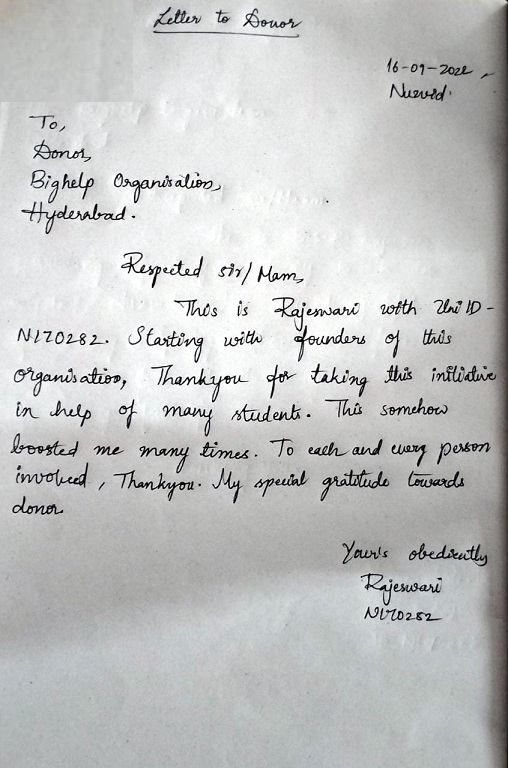 Letter to Donor
16-09-2022
Nuzvid.
To,
Donor,
Bighelp Organisation,
Hyderabad.
Respected sir/Mam,
This is Rajeswari with Uni ID -
N170282. Starting with founders of this
organisation, Thankyou for taking this initiative
in help of many students. This somehow
boosted me many times. To each and every person
involved, Thankyou. My special gratitude towards
donor
Your's obediently
Rajeswari
N170282